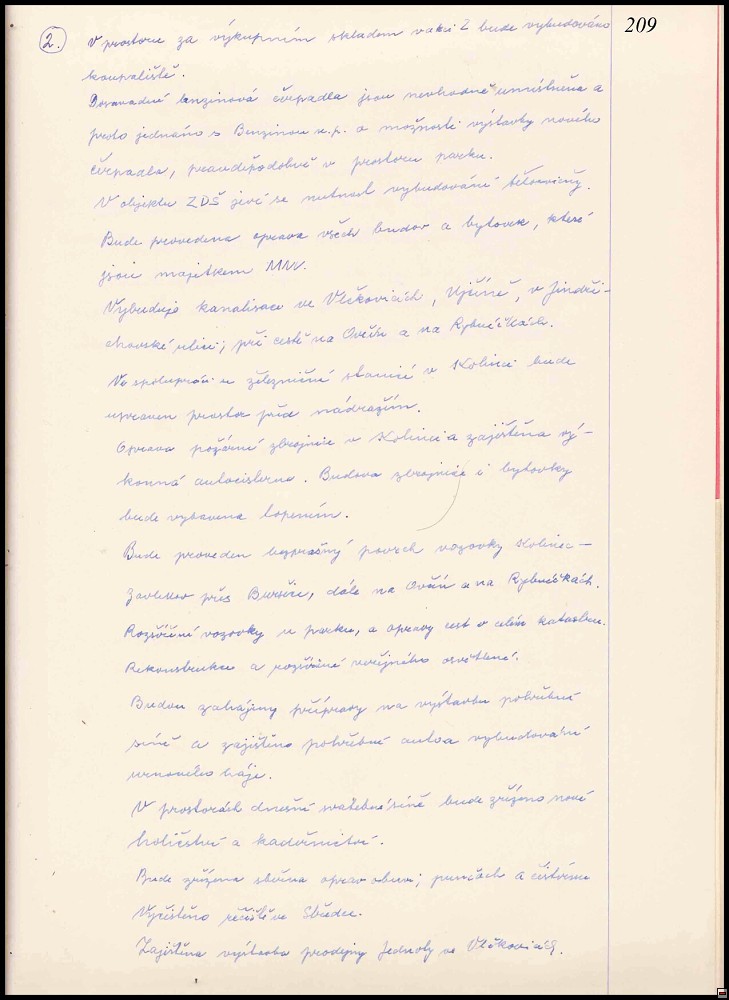 209
2. V prostoru za výkupním skladem v akci Z bude vybudováno
koupaliště.
Dosavadní benzinová čerpadla jsou nevhodně umístěna a
proto jednáno s Benzinou n.p. o možnosti výstavby nového
čerpadla, pravděpodobně v prostoru parku.
V objektu ZDŠ jeví se nutnost vybudování tělocvičny.
Bude provedena oprava všech budov a bytovek, které
jsou majetkem MNV.
Vybuduje kanalisace ve Vlčkovicích, Ujčíně, v Jindři-
chovské ulici; při cestě na Ovčín a na Rybníčkách.
Ve spolupráci u železniční stanicí v Kolinci bude
upraven prostor před nádražím.
Oprava požární zbrojnice v Kolinci a zajištěna vý-
konná autocisterna. Budova zbrojnice i bytovky
bude vybavena topením.
Bude proveden bezprašný povrch vozovky Kolinec-
Zavlekov přes Buršice, dále na Ovčín a na Rybníčkách.
Rozšíření vozovky u parku, a opravy cest v celém katastru.
Rekonstrukce a rozšíření veřejného osvětlení.
Budou zahájeny přípravy na výstavbu pohřební
síně a zajištěno pohřební auto a vybudování
urnového háje.
V prostorách dnešní svatební síně bude zřízeno nové
holičství a kadeřnictví.
Bude zřízena sběrna oprav obuvi; punčoch a čistírna
Vyčištěno řečiště ve Středu.
Zajištěna výstavba prodejny Jednoty ve Vlčkovicích.